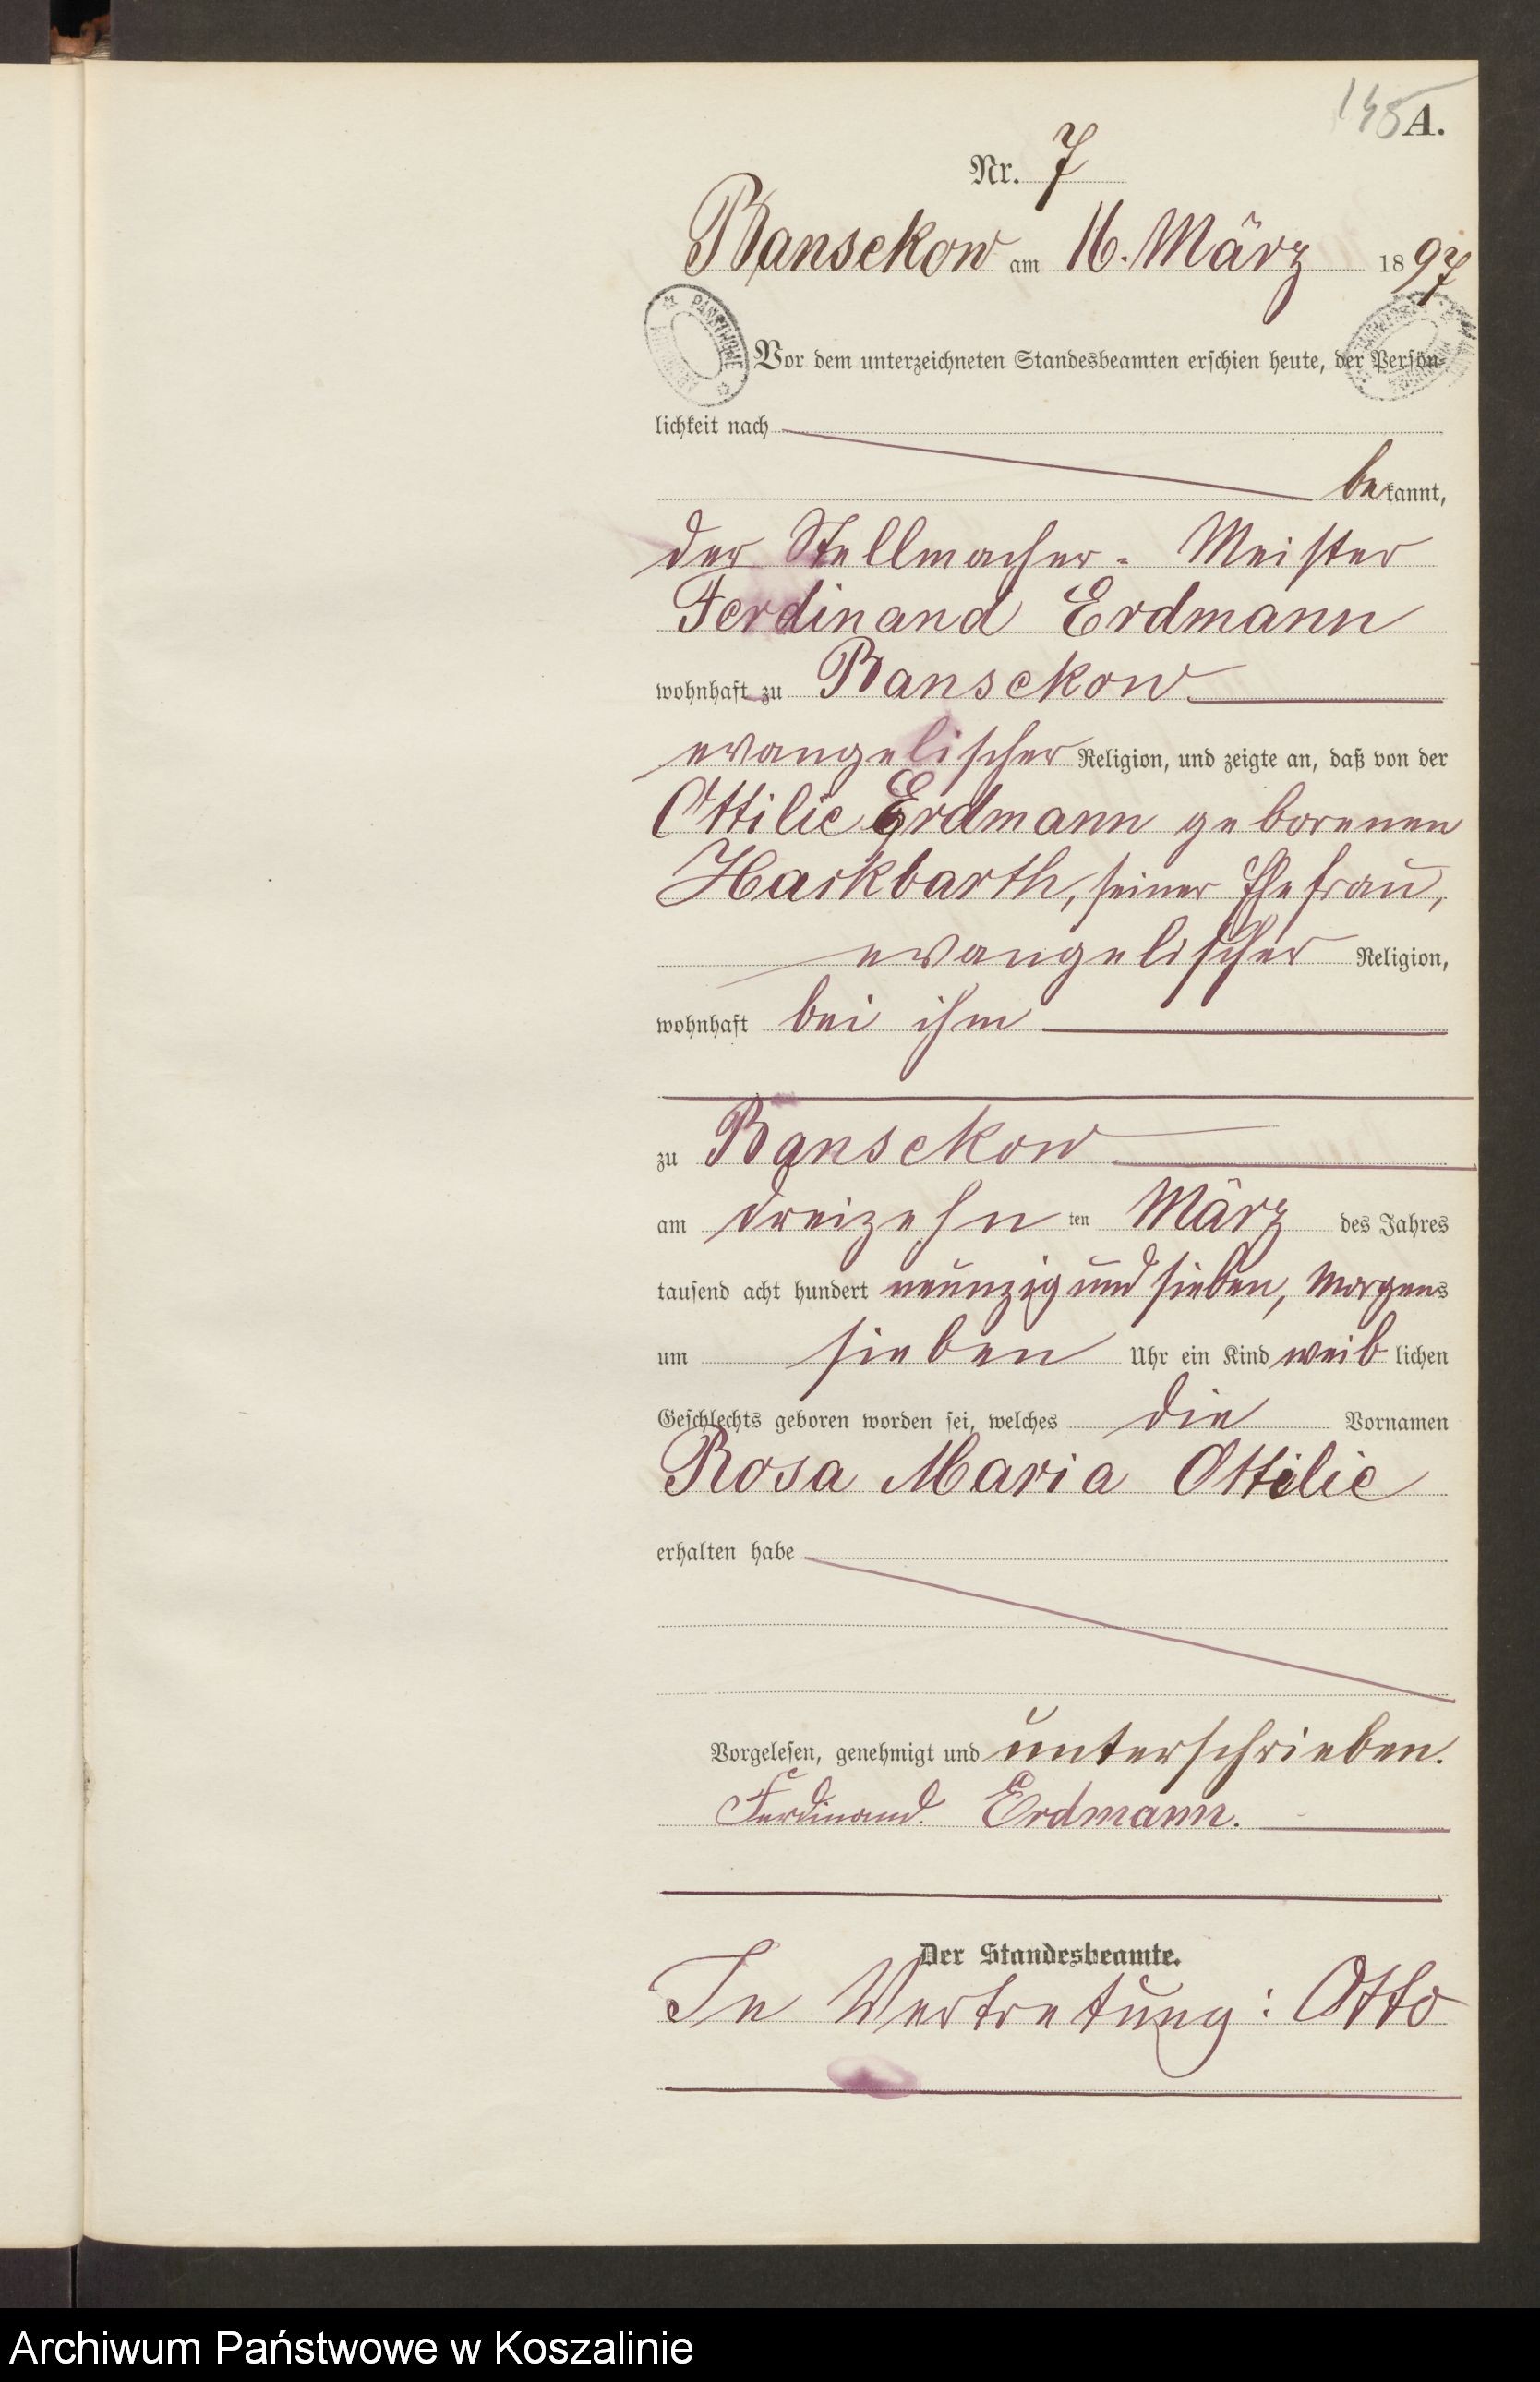 145 A.
Nr. 7
Bansekow am 16. März 1897
PAŃSTWOWE
Vor dem unterzeichneten Standesbeamten erschien heute, der Persön-
lichkeit nach
bekannt,
der Stellmacher-Meister
Ferdinand Erdmann
wohnhaft zu Bansekow
evangelischer Religion, und zeigte an, daß von der
Ottilie Erdmann geborenen
Hackbarth, seiner Ehefrau,
evangelischer Religion,
wohnhaft bei ihm
zu Bansekow
am dreizehn ten März des Jahres
tausend acht hundert neunzig und sieben, Morgens
um sieben Uhr ein Kind weiblichen
Geschlechts geboren worden sei, welches die Vornamen
Rosa Maria Ottilie
erhalten habe
Vorgelesen, genehmigt und unterschrieben.
Ferdinand. Erdmann.
Der Standesbeamte.
In Vertretung: Otto
Archiwum Państwowe w Koszalinie